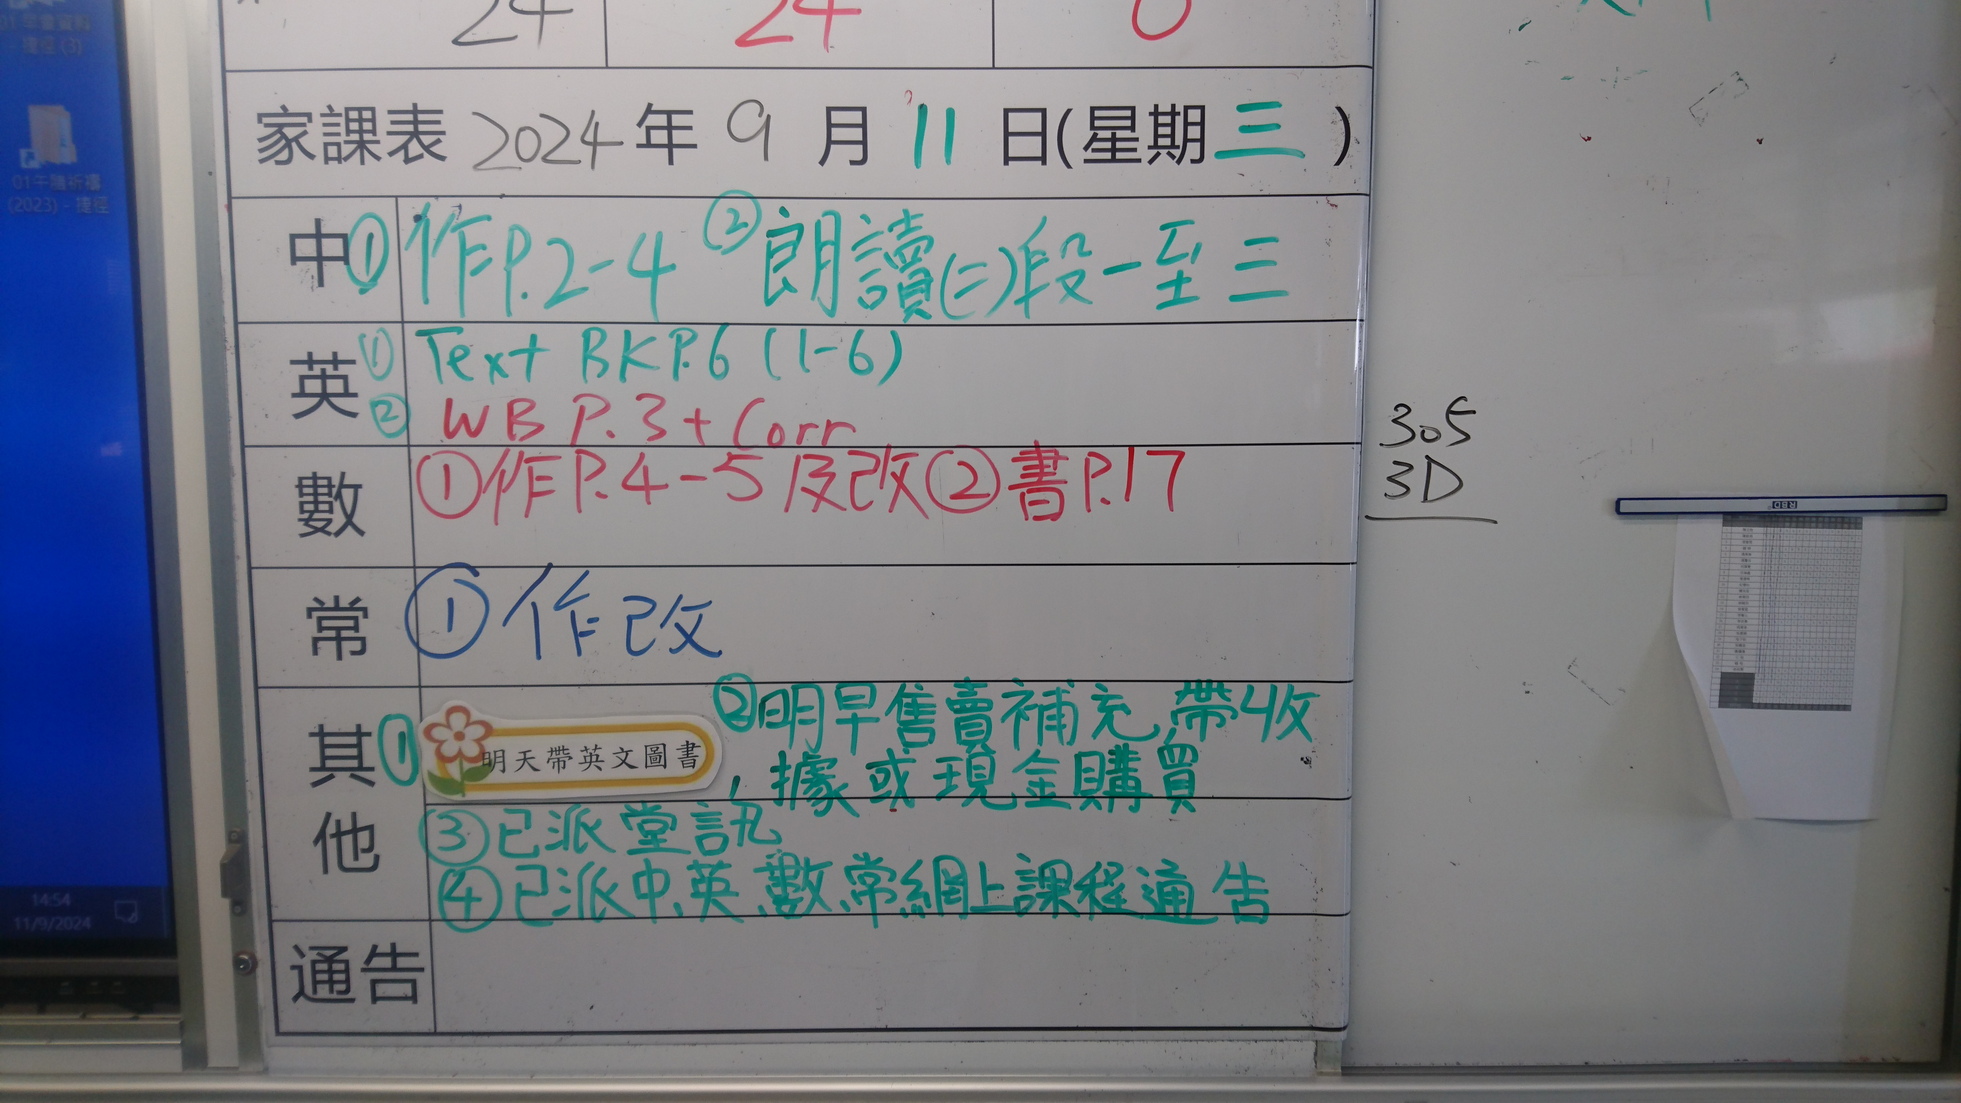 24 24 0
家課表 2024年 9 月 11 日(星期三)
中 ①作P.2-4 ②朗讀(二)段一至三
英 ① Text BK P.6 (1-6)
② WB P.3 + Corr
數 ①作P.4-5及改②書P.17
常 ①作改
其他 ① 明天帶英文圖書 ②明早售賣補充,帶收
據或現金購買
③已派堂訊
④已派中、英、數、常網上課程通告
通告
305
3D
01午膳祈禱
(2023) - 捷徑
- 捷徑 (3)
14:54
11/9/2024